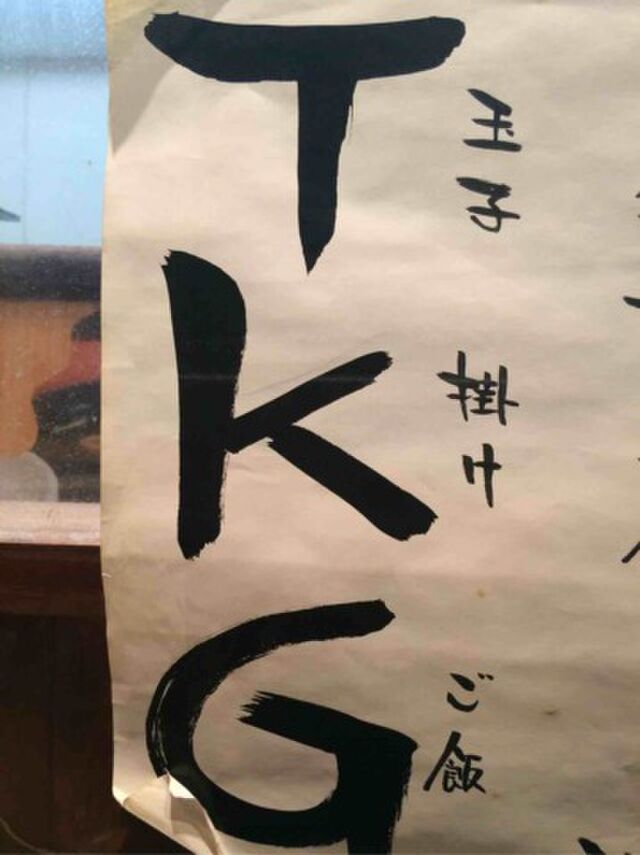 T
K
G
玉子
掛け
ご飯